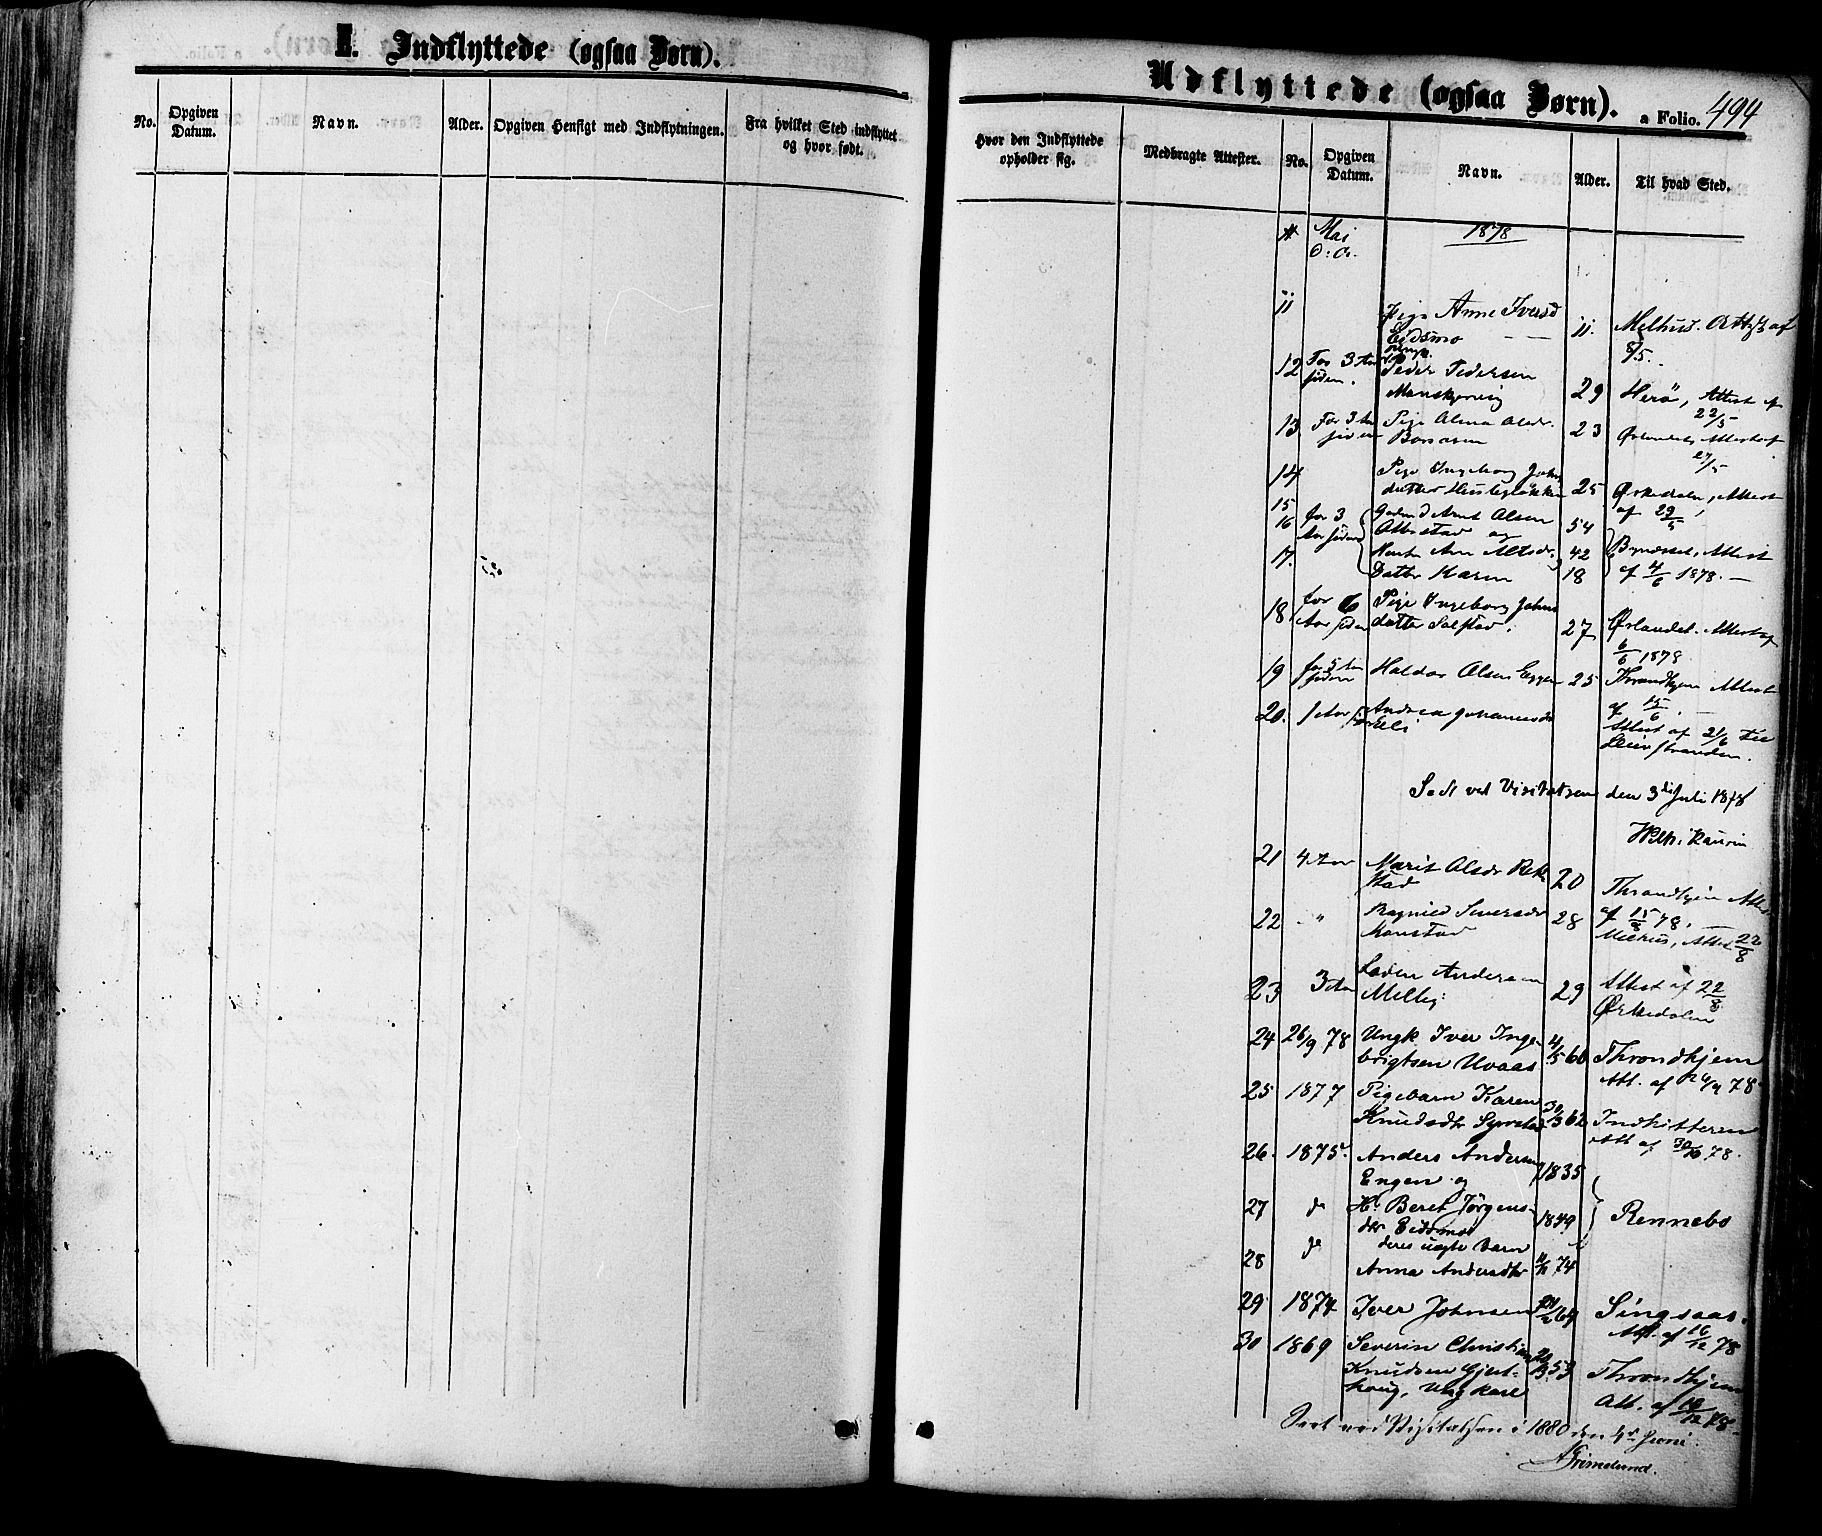 I. Indflyttede (ogsaa Børn).
No.
Opgiven Datum.
Navn.
Alder.
Opgiven Hensigt med Indflytningen.
Fra hvilket Sted indflyttet og hvor født.
Udflyttede (ogsaa Børn).
a Folio. 494
Hvor den Indflyttede opholder sig.
Medbragte Attester.
No.
Opgiven Datum.
Navn.
Alder.
Til hvad Sted.
Mai 1878
11 Pige Anne Iversd 11. Melhus. Attest af
Eidsmo 8/5.
12 For 3 Aar Peder Pedersen
siden. 29 Herö, Attest af
22/5
13 For 3 Aar Pige Alena Olsdr. 23 Ørlandet, Attest af
siden 27/5
14 Pige Ingeborg Johns
datter 25 Ørkedalen, Attest
15 af 29/5
16 for 3 Arnt Olsen 54
Aar siden og
17. Ane 42 Byneset, Attest
Datter Karen 18 af 4/6 1878.
18 for 6 Pige Ingeborg Johns
Aar siden datter Solstad. 27 Ørlandet. Attest af
6/6 1878
19 for 5 Aar Haldor Olsen Eggen 25 Throndhjem Attest
siden af 15/6
20. 1 Aar Andrea Johannesdr
Eli Attest af 21/6 til
Leinstranden.
Seet ved Visitatsen den 3die Juli 1878
21 4 Aar Marit Olsdr Rek
stad 20 Throndhjem Attest
af 15/8 78.
22 " Ragnild Siversdr 28 Melhus, Attest 22/8
23 3 Aar Andersen
Melby 29 Attest af 22/8
Ørkedalen
24 26/9 78 Ungk Iver Inge 4/5 60 Throndhjem
brigtsen Uvaas Att. af 26/9 78
25 1877 Pigebarn Karen
Knudsdtr 62 Indhitteren
Att af 30/10 78.
26. 1875. Anders Andersen
Engen og 1835
27 do H. Beret Jørgens-
dtr Eidsmo 1849 Rennebo
28 do deres uægte Barn
Anna Andersdtr 74
29 1874 Iver Johnsen 69 Singsaas.
Att. af 16/12 78
30 1869 Severin Christian
Knudsen Gjut- 53 Throndhjem
houg, Ungkarl Att. af 19/12 78
Seet ved Visitatsen i 1880 den 4de Juni.
Grimelund.